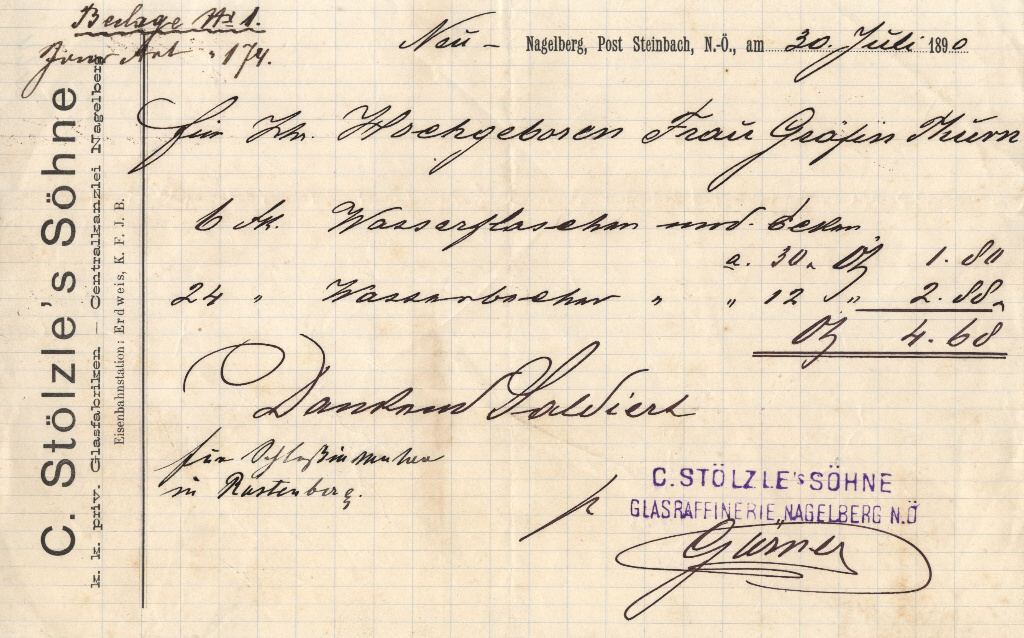 Beilage No 1.
Jour Art. " 174.
Neu - Nagelberg, Post Steinbach, N.-Ö., am 30. Juli 1890
C. Stölzle's Söhne
k. k. priv. Glasfabriken – Centralkanzlei Nagelberg
Eisenbahnstation: Erdweis, K. F. J. B.
für Ihr. Hochgeboren Frau Gräfin Thurn
6 Stk. Wasserflaschen und
a. 30 1.80
24 " Wasserbecher " " 12 " 2.88
4.68
Dankend Saldiert
für Schloß
in Rastenberg.
p C. STÖLZLE's SÖHNE
GLASRAFFINERIE NAGELBERG N.Ö